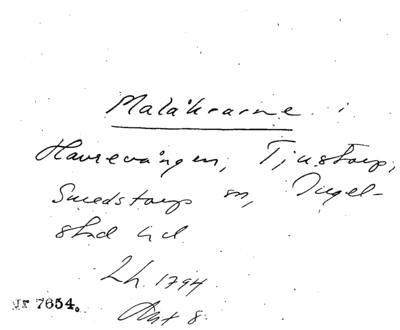 Malåkrarne i
Havrevången, Tjustorp,
Smedstorp sn, Ingel-
stad hd.
Lh. 1794
Akt 8.
gr 7654.